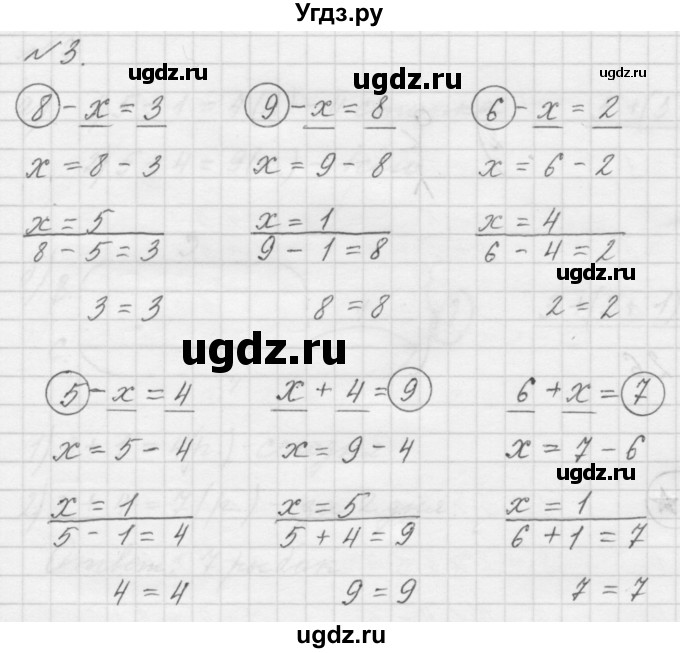 Угдз.ру
№3.
ugdz.ru ugdz.ru ugdz.ru
8 - x = 3 9 - x = 8 6 - x = 2
x = 8 - 3 x = 9 - 8 x = 6 - 2
x = 5 x = 1 x = 4
8 - 5 = 3 9 - 1 = 8 6 - 4 = 2
ugdz.ru
3 = 3 8 = 8 2 = 2
ugdz.ru
5 - x = 4 x + 4 = 9 6 + x = 7
x = 5 - 4 x = 9 - 4 x = 7 - 6
ugdz.ru ugdz.ru
x = 1 x = 5 x = 1
5 - 1 = 4 5 + 4 = 9 6 + 1 = 7
4 = 4 9 = 9 7 = 7
ugdz.ru